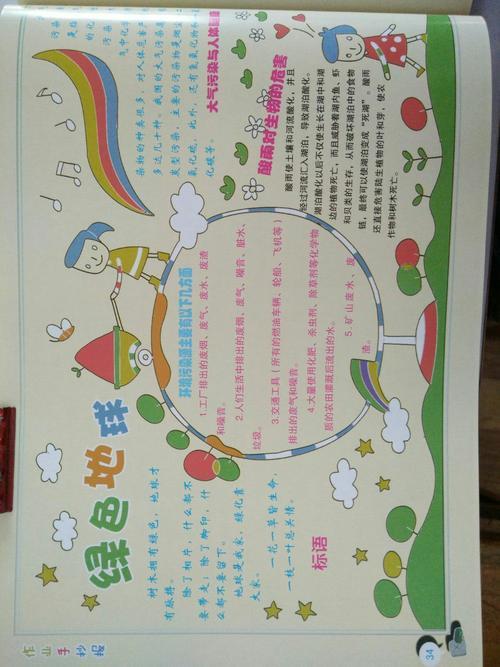 作业手抄报
绿色地球
树木拥有绿色，地球才
有脉搏。
除了相片，什么都不
要带走；除了脚印，什
么都不要留下。
地球是我家，绿化靠
大家。
一花一草皆生命，
一枝一叶总关情。
标语
环境污染源主要有以下几方面
1.工厂排出的废烟、废气、废水、废渣
和噪音。
2.人们生活中排出的废烟、废气、噪音、脏水、
垃圾。
3.交通工具（所有的燃油车辆、轮船、飞机等）
排出的废气和噪音。
4.大量使用化肥、杀虫剂、除草剂等化学物
质的农田灌溉后流出的水。
5.矿山废水、废
渣。
大气污染与人体健康
污染
是指
气中化学
染物的种类很多，对人体危害
多达几十种。我国的大气污染
发型污染，主要的污染物是烟尘
氧化硫，此外，还有氮氧化物
化碳等。
酸雨对生物的危害
酸雨使土壤和河流酸化，并且
经过河流汇入湖泊，导致湖泊酸化。
湖泊酸化以后不仅使生长在湖中和湖
边的植物死亡，而且威胁着湖内鱼、虾
和贝类的生存，从而破坏湖泊中的食物
链，最终可以使湖泊变成“死湖”。酸雨
还直接危害陆生植物的叶和芽，使农
作物和树木死亡。
34